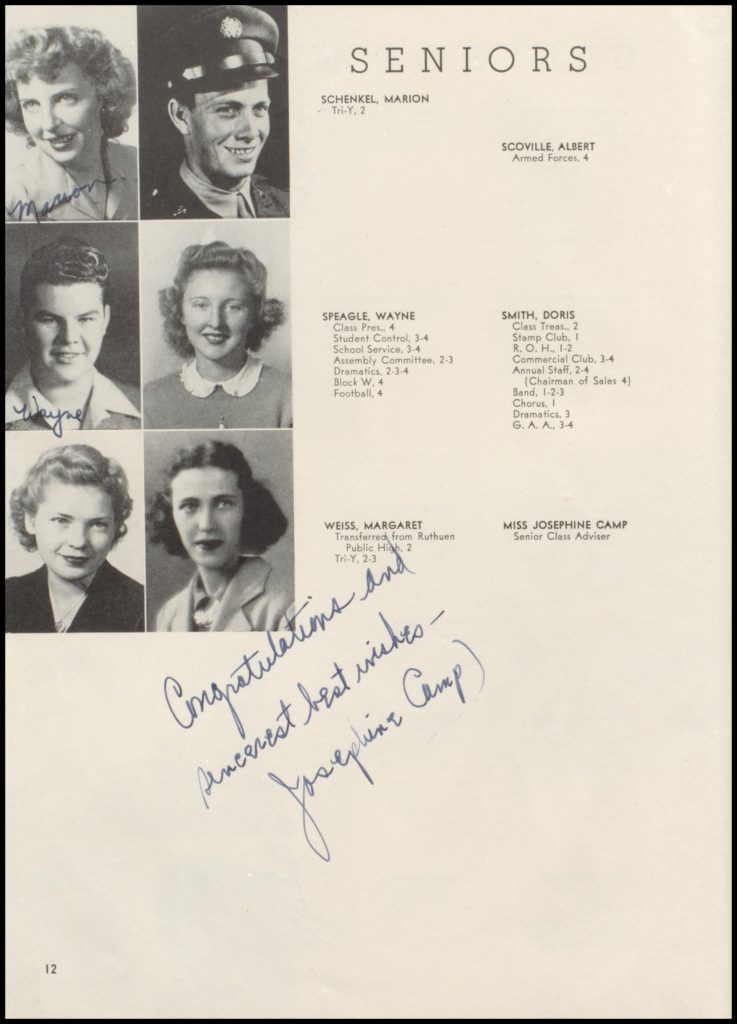 SENIORS
SCHENKEL, MARION
Tri-Y, 2
SCOVILLE, ALBERT
Armed Forces, 4
Marion
SPEAGLE, WAYNE
Class Pres., 4
Student Control, 3-4
School Service, 3-4
Assembly Committee, 2-3
Dramatics, 2-3-4
Block W, 4
Football, 4
SMITH, DORIS
Class Treas., 2
Stamp Club, 1
R. O. H., 1-2
Commercial Club, 3-4
Annual Staff, 2-4
(Chairman of Sales 4)
Band, 1-2-3
Chorus, 1
Dramatics, 3
G. A. A., 3-4
Wayne
WEISS, MARGARET
Transferred from Ruthuen
Public High, 2
Tri-Y, 2-3
MISS JOSEPHINE CAMP
Senior Class Adviser
Congratulations and
sincerest best wishes–
Josephine Camp
12